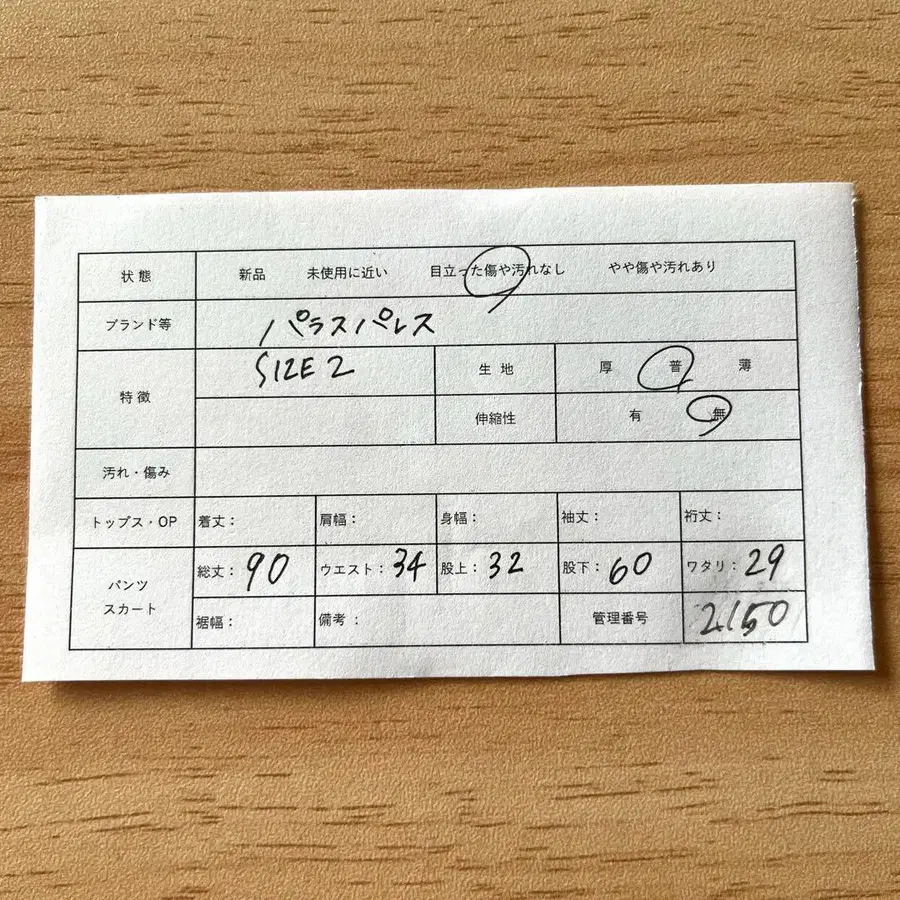 状態 新品 未使用に近い 目立った傷や汚れなし やや傷や汚れあり
ブランド等 パラスパレス
特徴 SIZE 2 生地 厚 普 薄
伸縮性 有 無
汚れ・傷み
トップス・OP 着丈： 肩幅： 身幅： 袖丈： 裄丈：
パンツ スカート 総丈：90 ウエスト：34 股上：32 股下：60 ワタリ：29
裾幅： 備考： 管理番号 2150